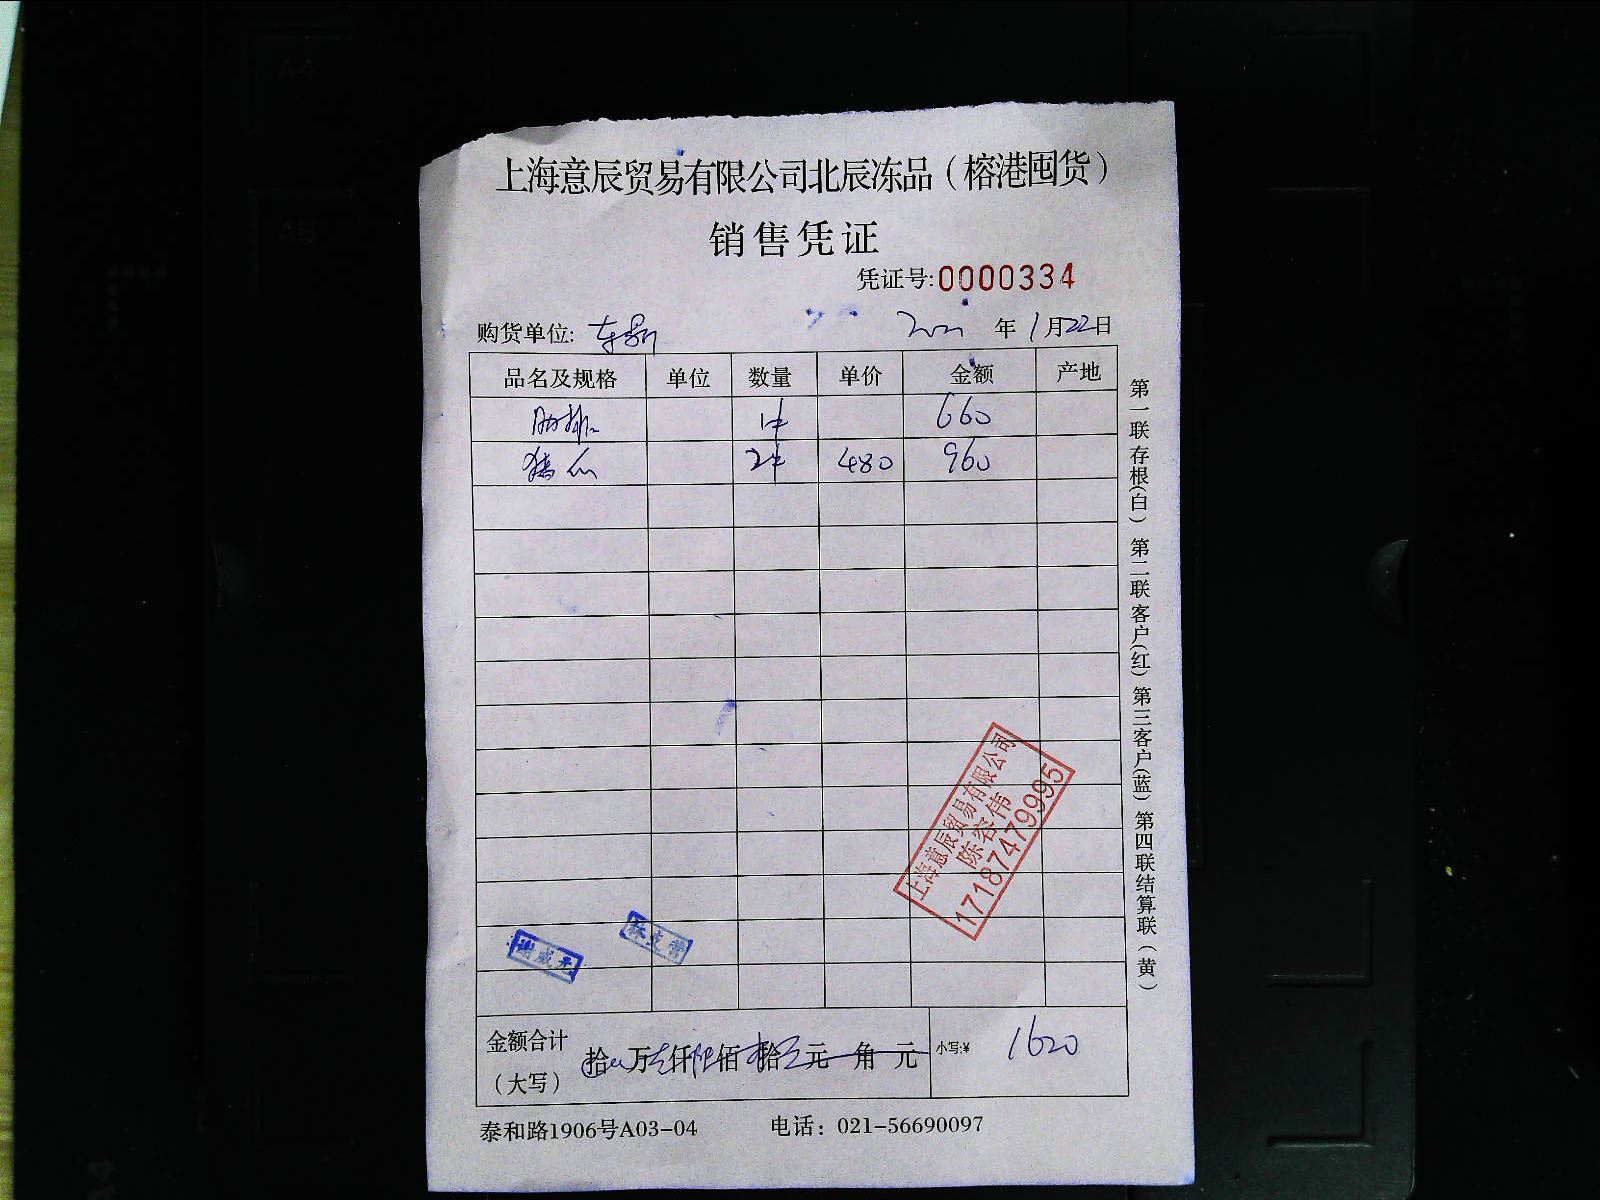 上海意辰贸易有限公司北辰冻品（榕港囤货）
销售凭证
凭证号:0000334
购货单位: 年1月22日
品名及规格 单位 数量 单价 金额 产地
肋排 1件 660
2件 480 960
上海意辰贸易有限公司
陈容伟
17187479995
谢成元
金额合计（大写） 拾 万 仟 佰 拾 元 角 元 小写:¥ 1620
泰和路1906号A03-04 电话：021-56690097
第一联存根（白）第二联客户（红）第三客户（蓝）第四联结算联（黄）